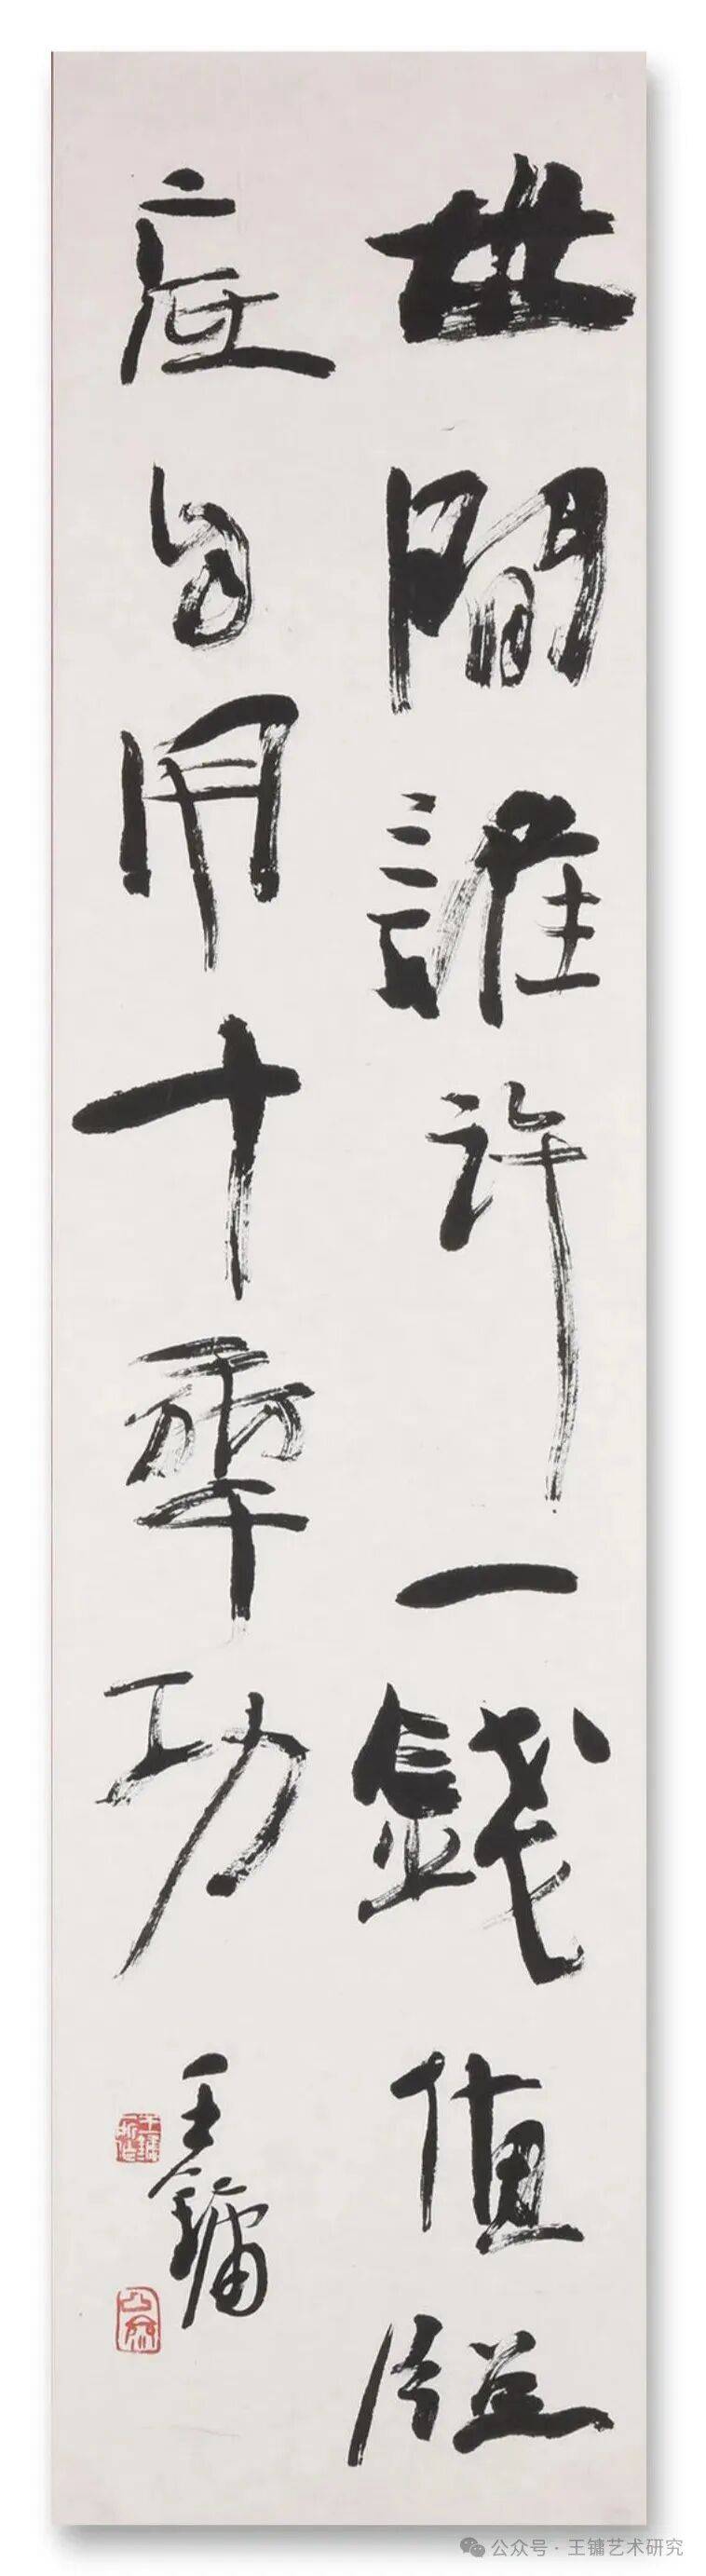 世間誰許一錢值牕
底自用十年功
王鏞
公众号 · 王镛艺术研究